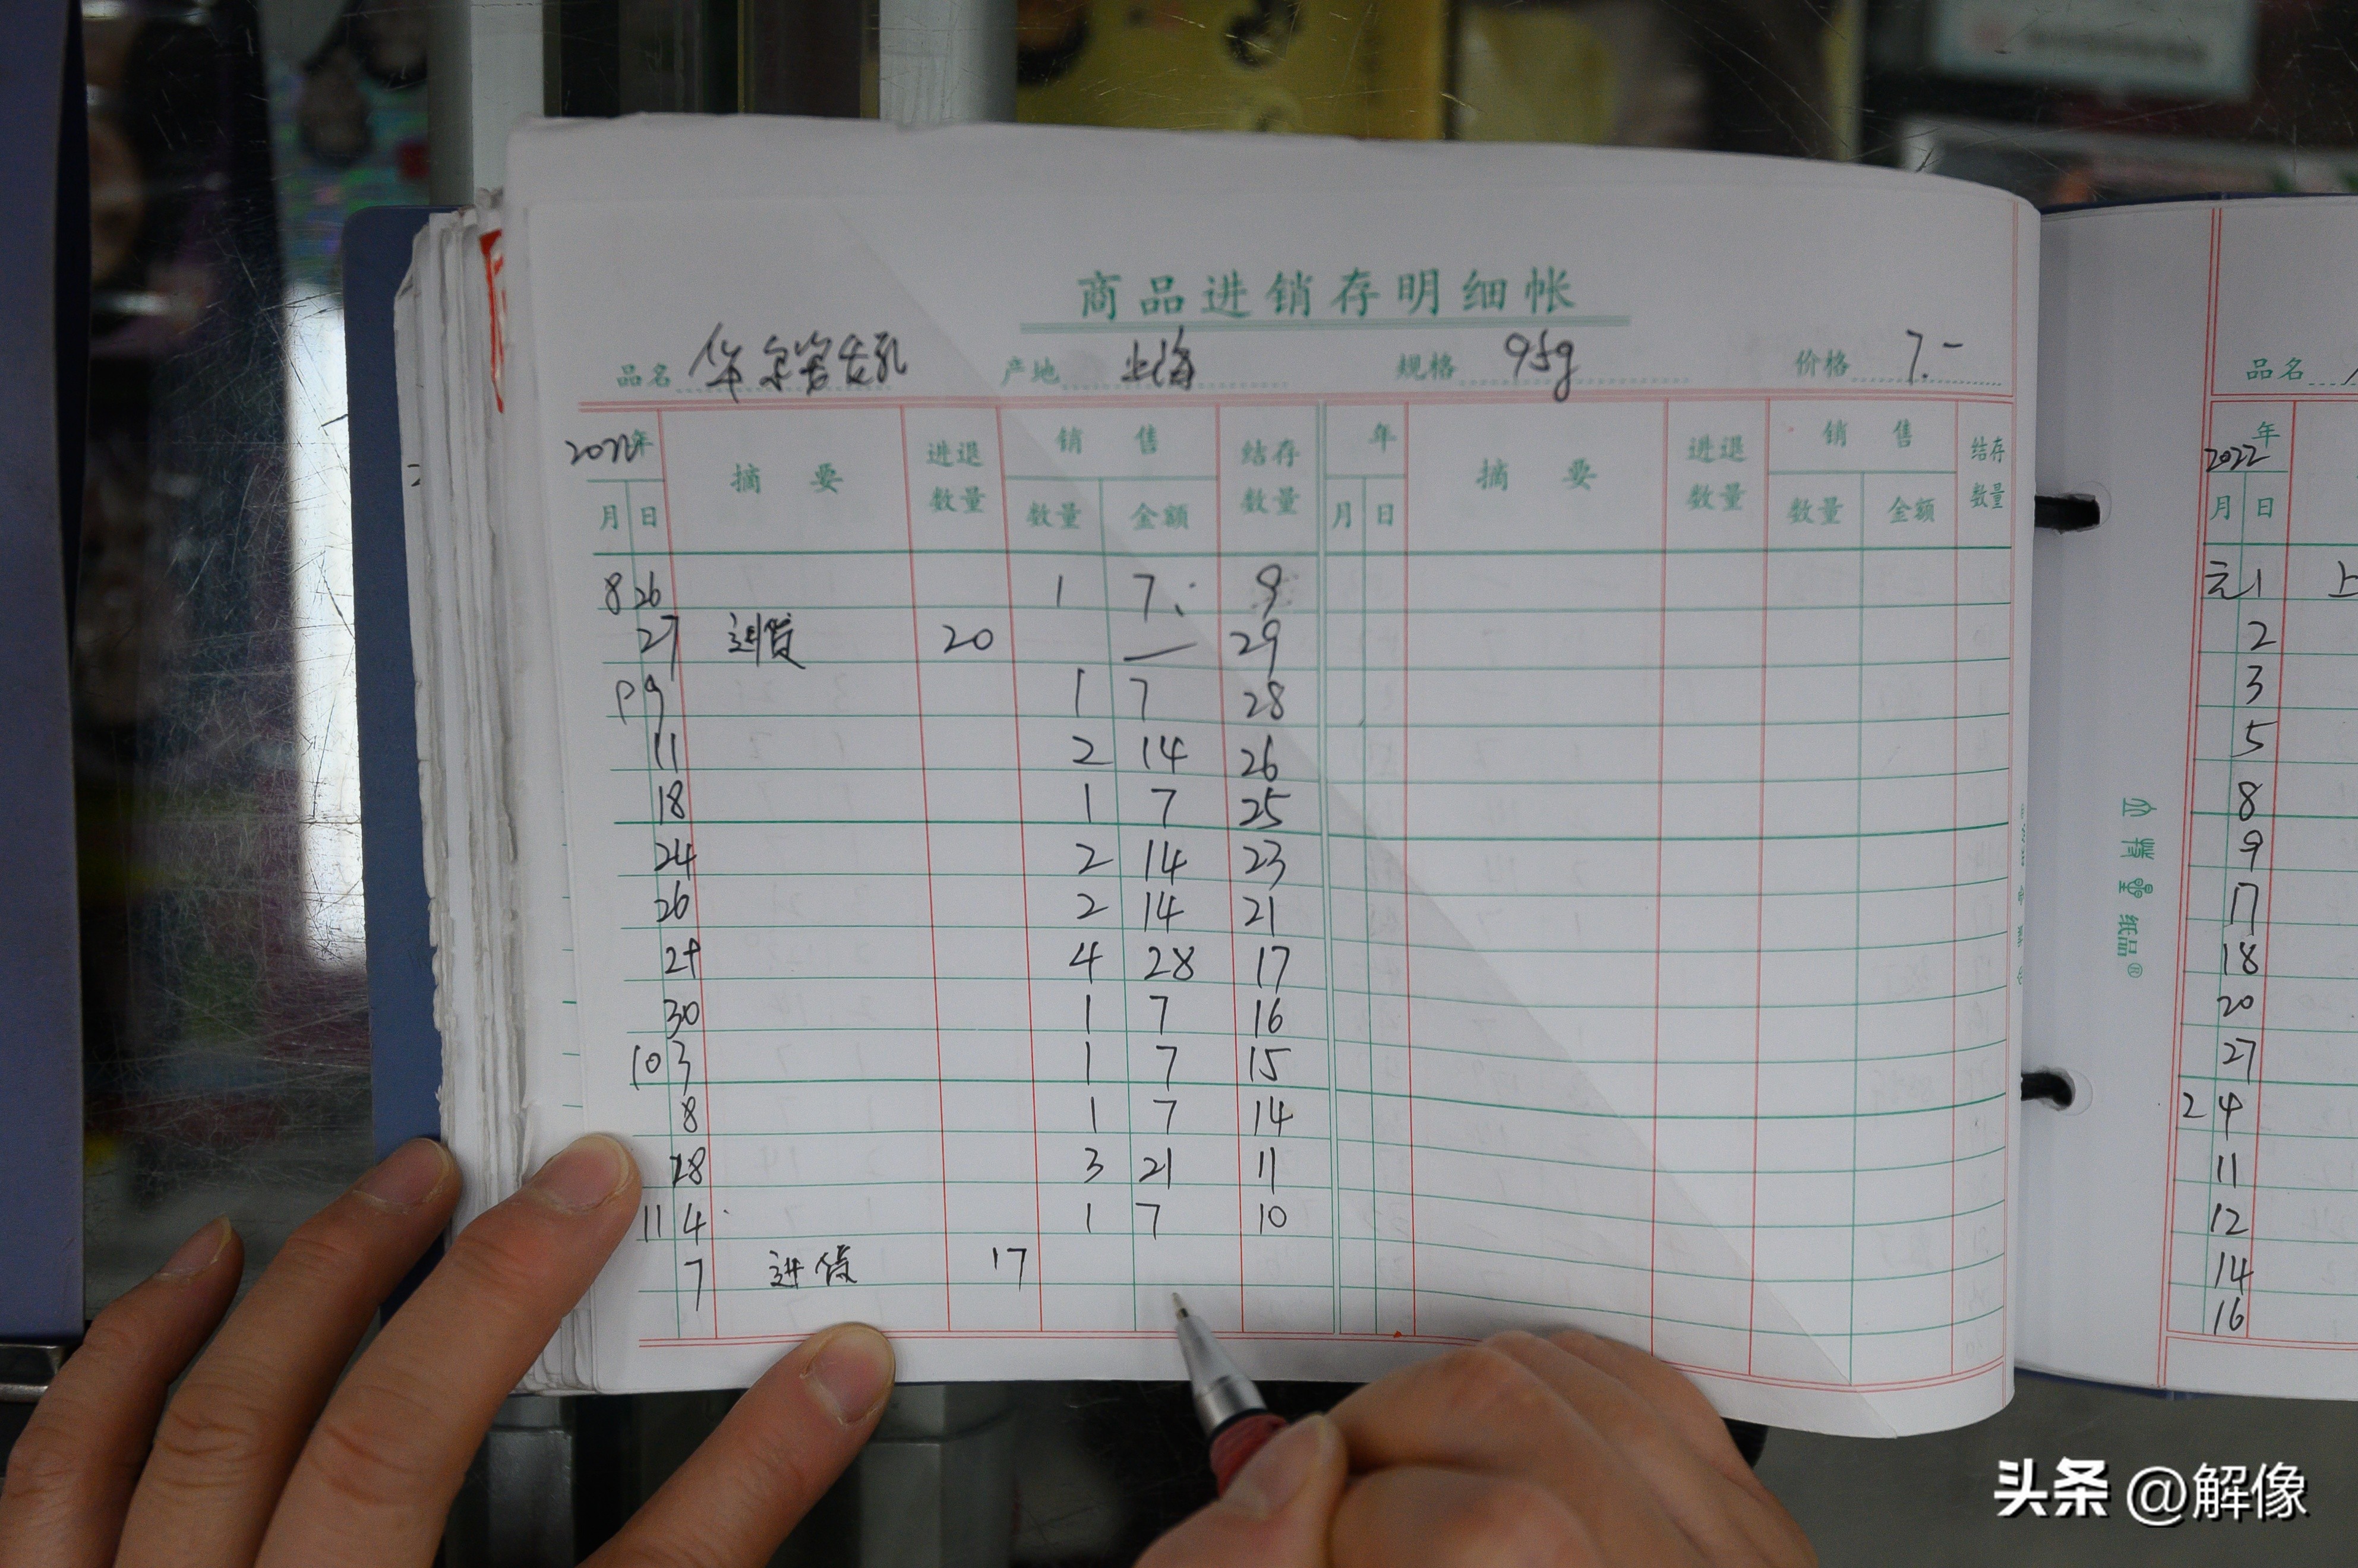 商品进销存明细帐
品名 华尔姿发乳 产地 上海 规格 95g 价格 7.-
2022年 摘要 进退数量 销售 结存数量 年 摘要 进退数量 销售 结存数量
月 日 数量 金额 月 日 数量 金额
8 26 1 7. 9
27 进货 20 — 29
9 9 1 7 28
11 2 14 26
18 1 7 25
24 2 14 23
26 2 14 21
29 4 28 17
30 1 7 16
10 3 1 7 15
8 1 7 14
28 3 21 11
11 4 1 7 10
7 进货 17
品名
2022年
月 日
元 1 上
2
3
5
8
9
17
18
20
27
2 4
11
12
14
16
纸品®
头条 @解像